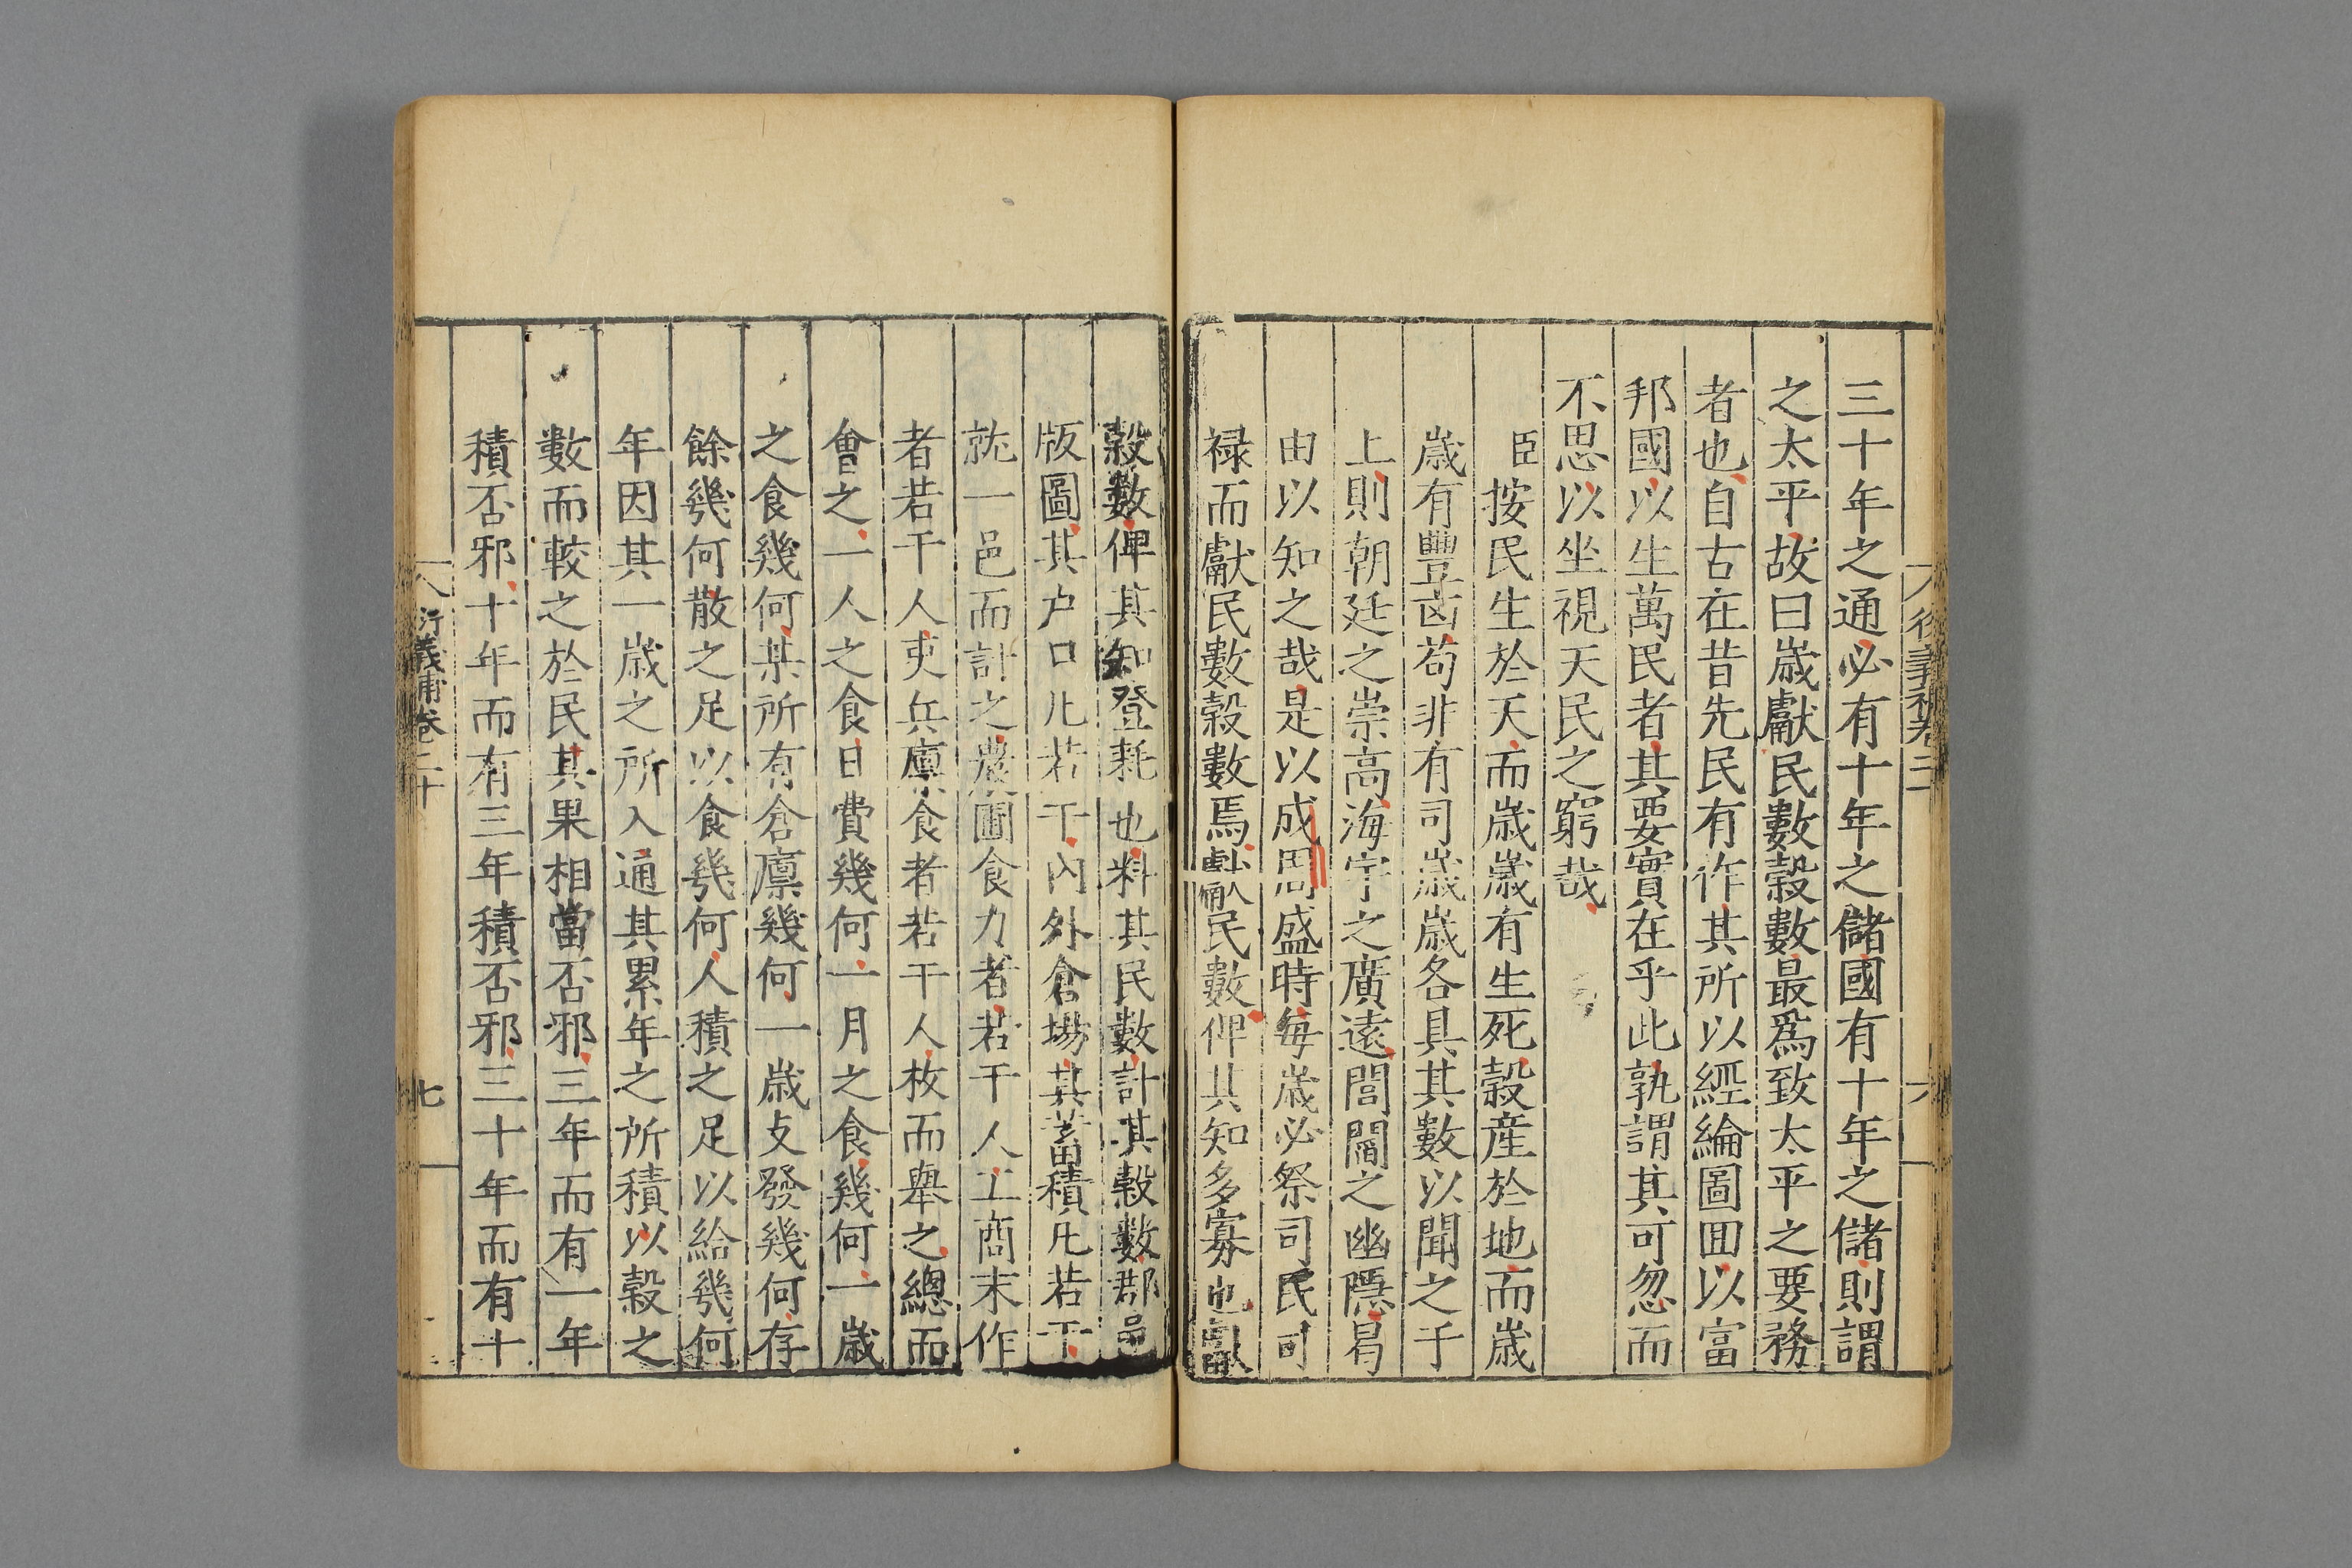 三十年之通必有十年之儲國有十年之儲則謂
之太平故曰歳獻民數穀數最爲致太平之要務
者也自古在昔先民有作其所以經綸圖囬以富
邦國以生萬民者其要實在乎此孰謂其可忽而
不思以坐視天民之窮哉
臣按民生於天而歳歳有生死穀産於地而歳
歳有豐㐫茍非有司歳歳各具其數以聞之于
上則朝廷之崇高海宇之廣遠閭閻之幽隱曷
由以知之哉是以成周盛時每歳必祭司民司
禄而獻民數穀數焉獻民數俾其知多寡也獻
穀數俾其知登耗也料其民數計其穀數郡邑
版圖其户口凡若干內外倉場其蓄積凡若干
就一邑而計之農圃食力者若干人工商末作
者若干人吏兵廪食者若干人枚而舉之總而
會之一人之食日費幾何一月之食幾何一歳
之食幾何某所有倉廪幾何一歳支發幾何存
餘幾何散之足以食幾何人積之足以給幾何
年因其一歳之所入通其累年之所積以穀之
數而較之於民其果相當否邪三年而有一年
積否邪十年而有三年積否邪三十年而有十
衍義補卷二十
七